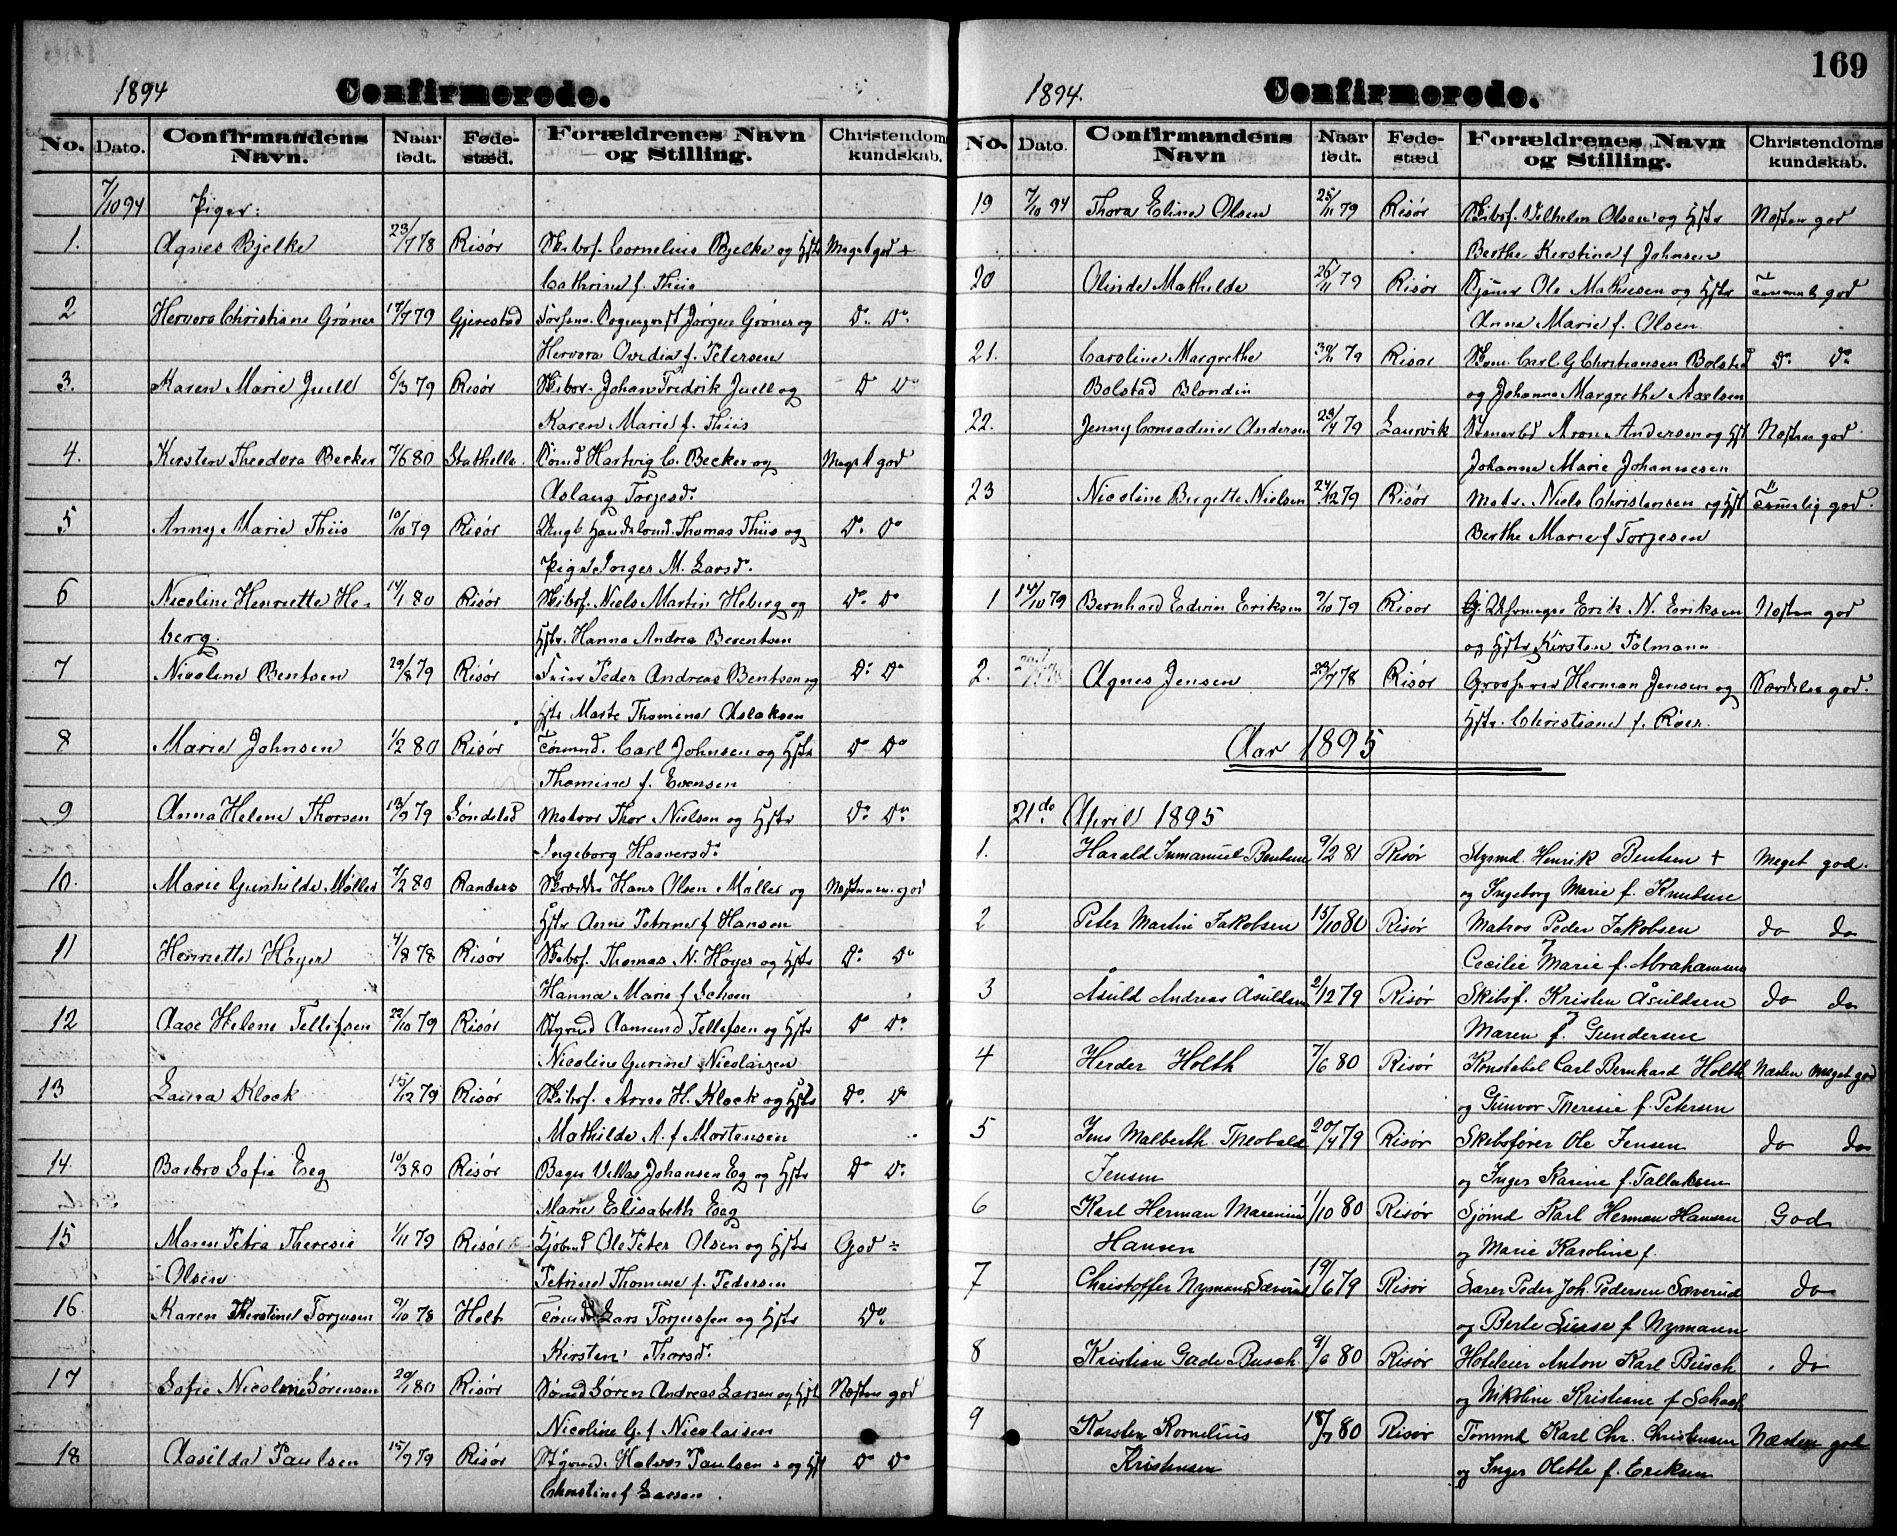 169
1894 Confirmerede.
No. Dato. Confirmandens Navn. Naar født. Føde-stæd. Forældrenes Navn og Stilling. Christendoms kundskab.
7/10 94 Piger:
1. Agnes Bjelke 23/7 78 Risør Skibsf. Cornelius Bjelke og Hstr Meget god +
Cathrine f. Thiis
2 Hervora Christiane Grøner 17/7 79 Gjerestad Jørgen Grøner og Do Do
Hervora Ovidia f. Petersen
3. Karen Marie Juell 6/3 79 Risør Johan Fredrik Juell og Do Do
Karen Marie f. Thiis
4. Kirsten Theodora Becker 7/6 80 Stathelle Hartvig C. Becker og Meget god
Aslaug Torjesd.
5 Anny Marie Thiis 10/10 79 Risør Ungk. Thomas Thiis og Do Do
Pige Inger M. Larsd.
6 Nicoline Henriette He- 14/1 80 Risør Skibsf. Niels Martin Heberg og Do Do
berg. Hstr. Hanna Andrea Berentsen
7 Nicoline Bentsen 29/8 79 Risør Peder Andreas Bentsen og Do Do
Hstr Marte Thomine Aslaksen
8 Marie Johnsen 1/2 80 Risør Tømmd. Carl Johnsen og Hstr Do Do
Thomine f. Evensen
9 Anna Helene Thorsen 13/9 79 Søndeled Matros Thor Nielsen og Hstr Do Do
Ingeborg Haaversd.
10. Marie Gunhilde Møller 4/2 80 Randers Skrædder Hans Olsen Møller og god
Hstr Anne Petrine f Hansen
11 Henriette Høyer 4/8 78 Risør Skibsf. Thomas N. Høyer og Hstr Do Do
Hanna Marie f
12 Aase Helene Tellefsen 22/10 79 Risør Styrmd Aamund Tellefsen og Hstr Do Do
Nicoline Gurine Nicolaisen
13 Laura Klock 15/12 79 Risør Skibsf. Arne H. Klock og Hstr Do Do
Mathilde A. f Mortensen
14. Barbro Sofie Eeg 10/3 80 Risør Johansen Eg og Hstr Do Do
Marie Elisabeth Eeg
15 Maren Petra Theresie 1/11 79 Risør Ole Peter Olsen og Hstr God
Olsen Petrine Thomine f. Pedersen
16. Karen Kerstine Torjusen 9/10 78 Holt Lars Torjussen og Hstr Do
Kirsten Thorsd.
17 Sofie Nicoline Sørensen 20/1 80 Risør Sømd Søren Andreas Larsen og Hstr Næsten god
Nicoline G. f Nicolaisen
18 Aasilda Paulsen 15/9 79 Risør Styrmd. Halvor Paulsen og Hst Do Do
Christine f Larsen.
1894. Confirmerede.
No. Dato. Confirmandens Navn Naar født. Føde-stæd Forældrenes Navn og Stilling. Christendoms kundskab.
19 7/10 94 Thora Eline Olsen 25/11 79 Risør Skibsf. Vilhelm Olsen og Hstr Næsten god
Berthe Kerstine f Johnsen
20 Olinde Mathilde 26/11 79 Risør Ole Mathiesen og Hstr god
Anna Marie f. Olsen
21. Caroline Margrethe 30/11 79 Risør Carl G Christiansen Bolstad Do Do
Bolstad Blondin og Johanne Margrethe Axelsen
22. Jenny Conradine Andersen 23/4 79 Laurvik Aron Andersen og Hst Næsten god
Johanne Marie Johannesen
23 Nicoline Birgitte Nielsen 24/12 79 Risør Matr. Niels Christensen og Hst Temmelig god.
Berthe Marie f Torjesen
1 14/10 79 Bernhard Edvin Eriksen 9/10 79 Risør Erik N. Eriksen Næsten god
og Hstr Kirsten Tolmann
2. Agnes Jensen 23/7 78 Risør Herman Jensen og Særdeles god.
Hstr. Christiane f. Roer.
Aar 1895
21de April 1895
1. Harald Immanuel Bentsen 9/2 81 Risør Styrmd Henrik Bentsen + Meget god.
og Ingeborg Marie f. Knutsen
2 Peter Martin Jakobsen 15/10 80 Risør Matros Peder Jakobsen do do
Cecilie Marie f. Abrahamsen
3 Åsuld Andreas Åsuldsen 2/12 79 Risør Skibsf. Kristen Åsuldsen do do
Maren f. Gundersen
4 Herder Holth 7/6 80 Risør Konstabel Carl Bernhard Holth Næsten meget god
og Gunvor Theresie f. Petersen
5 Jens Malberth Theobald 20/4 79 Risør Skibsfører Ole Jensen do do
Jensen og Inger Karine f. Tallaksen
6 Karl Herman Marenius 1/10 80 Risør Sjømd Karl Herman Hansen God
Hansen og Marie Karoline f.
7 Christoffer Nymann Sæverud 19/6 79 Risør Lærer Peder Joh. Pedersen Sæverud do
og Berte Lurse f Nymann
8 Kristian Gade Busch 9/6 80 Risør Hoteleier Anton Karl Busch do
og Nikoline Kristiane f Schach
9 Karsten Kornelius 18/7 80 Risør Tømmd Karl Chr. Christensen Næsten god
Kristensen og Inger Olette f. Eriksen